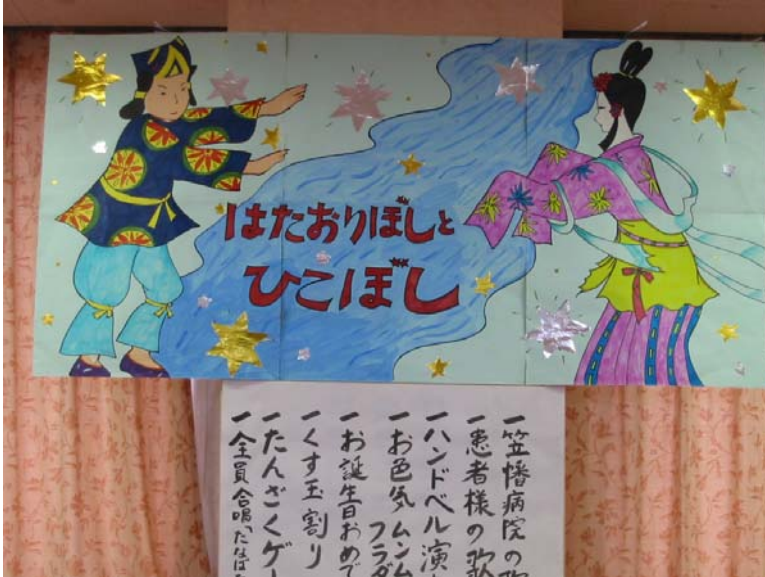 はたおりぼしと
ひこぼし
一笠幡病院の歌
一患者様の歌
一ハンドベル演
一お色気ムンム
フラダ
一お誕生日おめで
一くす玉割り
一たんざくゲー
一全員合唱「たなば